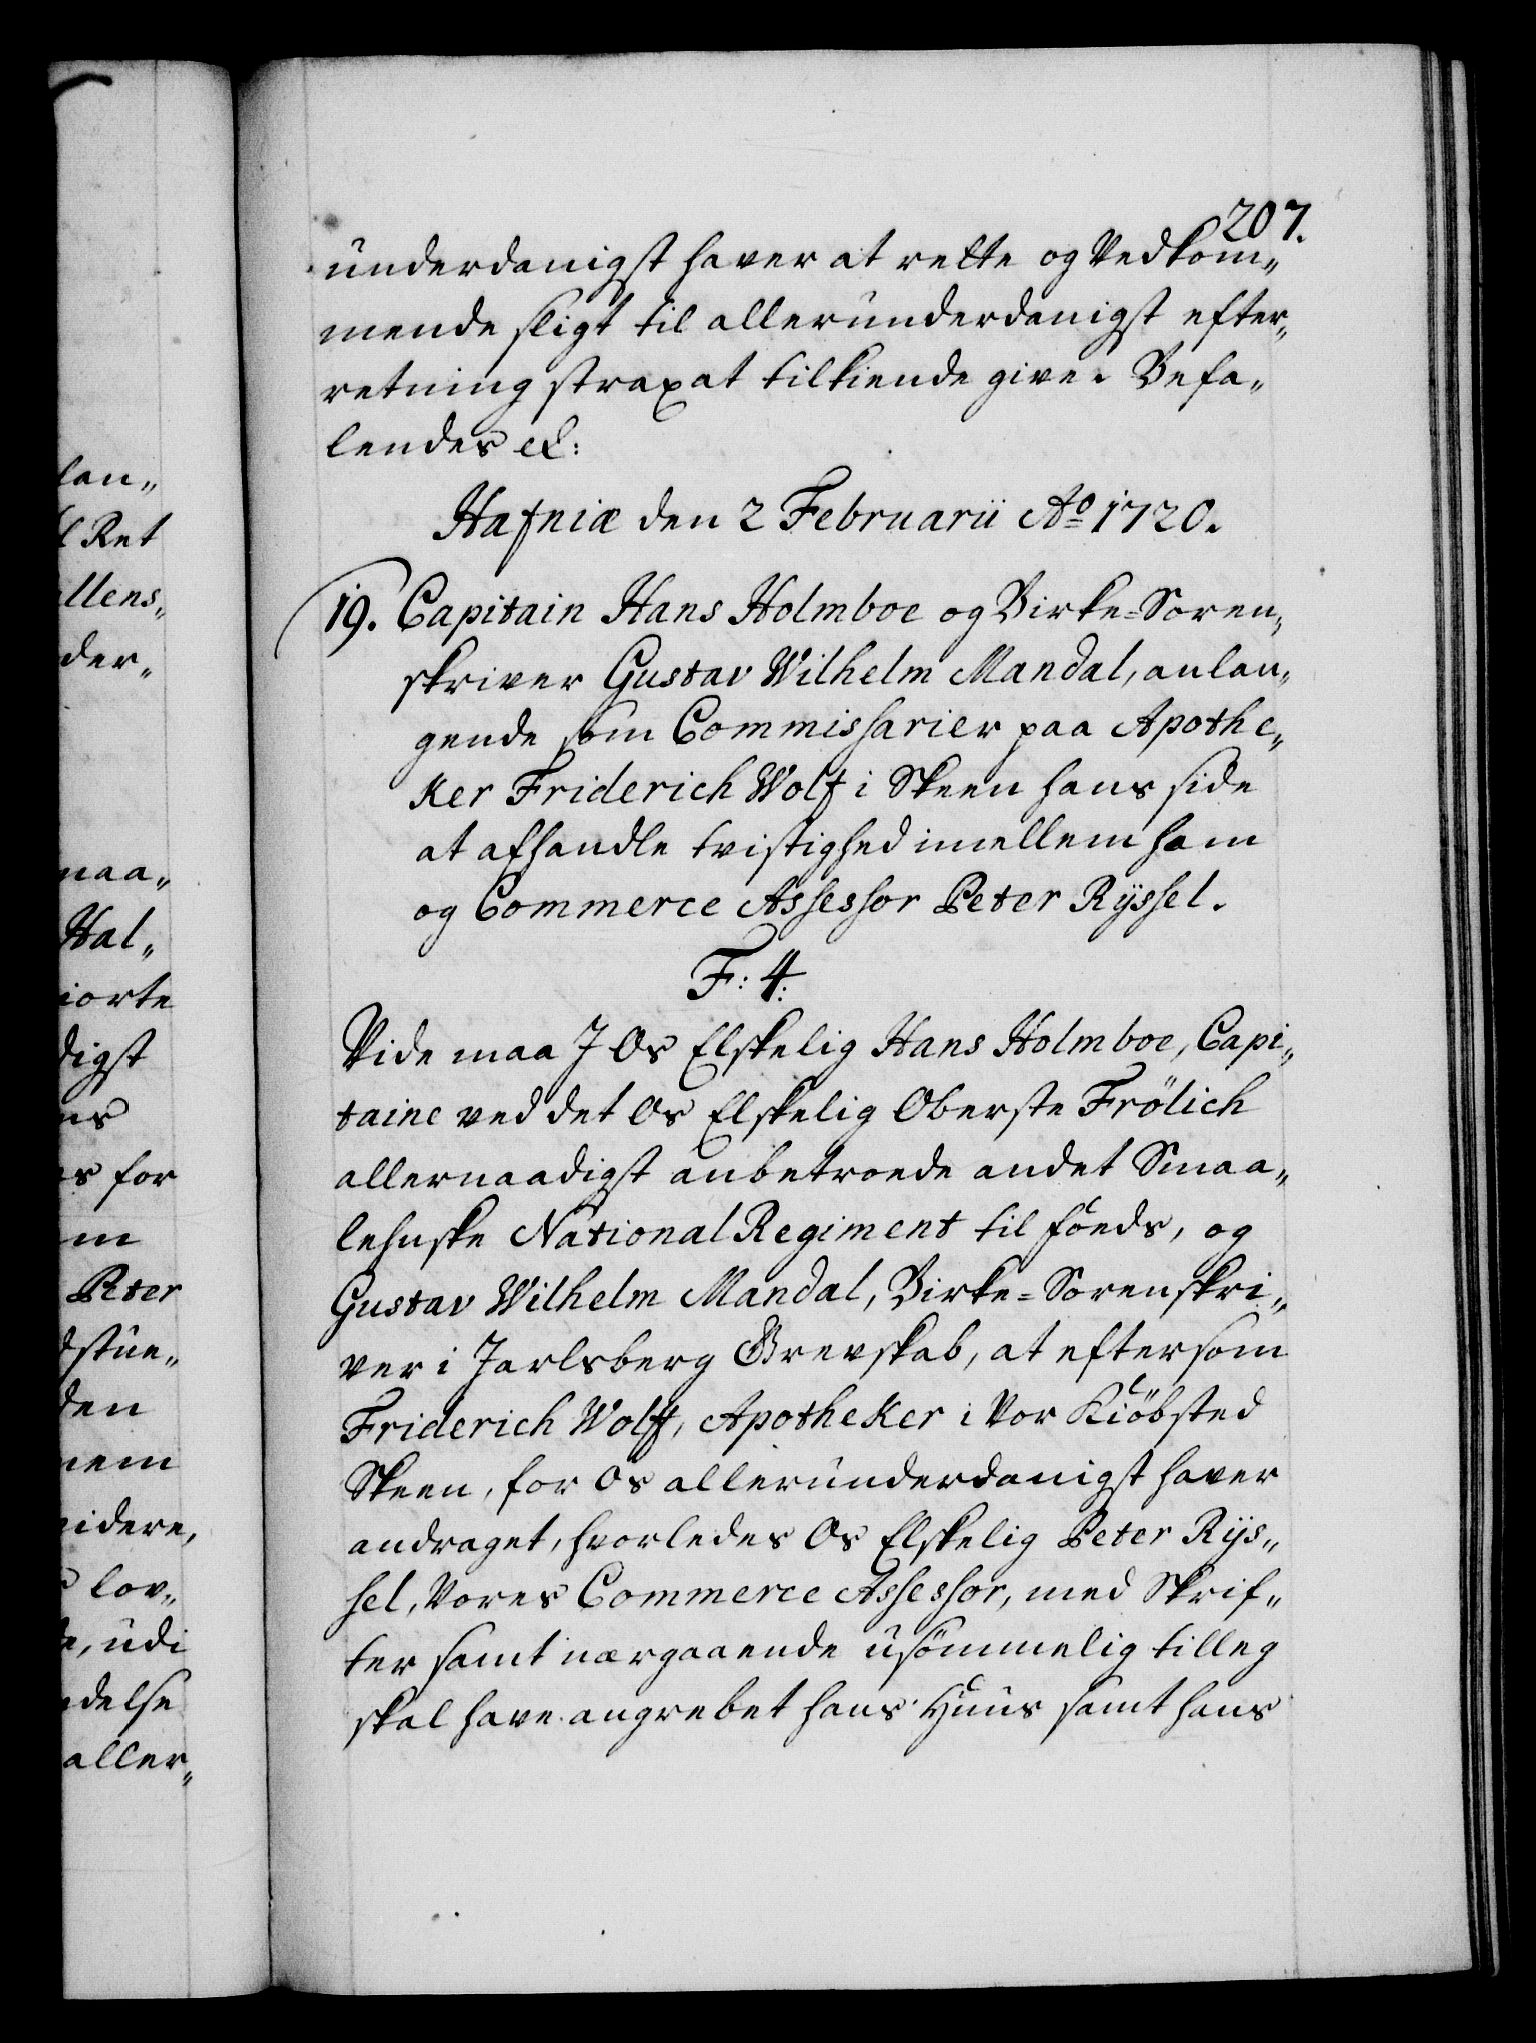 lan„
l Ret
llens„
der„
maa„
Hal„
iorte
digst
ns
es for
m
Peter
dstüe„
den
nem
videre,
s lov„
de, üdi
ndelse
aller„
207.
ünderdanigst haver at rette og Vedkom„
mende sligt til alleründerdanigst efter„
retning strax at tilkiende give. Befa„
lendes ec:
Hafniæ den 2 Februarii Ao 1720.
19. Capitain Hans Holmboe og Birke-Soren„
skriver Gustav Wilhelm Mandal, anlan„
gende som Commissarier paa Apothe„
ker Friderich Wolf i Skeen hans side
at afhandle tvistighed imellem ham
og Commerce Assessor Peter Ryssel.
F: 4:
Vide maa I Os Elskelig Hans Holmboe, Capi„
taine ved det Os Elskelig Oberste Frölich
allernaadigst anbetroede andet Smaa„
lehnske National Regiment til föeds, og
Gustav Wilhelm Mandal, Birke-Sorenskri„
ver i Jarlsberg Grevskab, at eftersom
Friderich Wolff, Apotheker i Vor Kiöbsted
Skeen, for Os alleründerdanigst haver
andraget, hvorledes Os Elskelig Peter Rys„
sel, Vores Commerce Assessor, med Skrif„
ter samt nærgaaende üsömmelig tilleg
skal have angrebet hans Hüüs samt hans